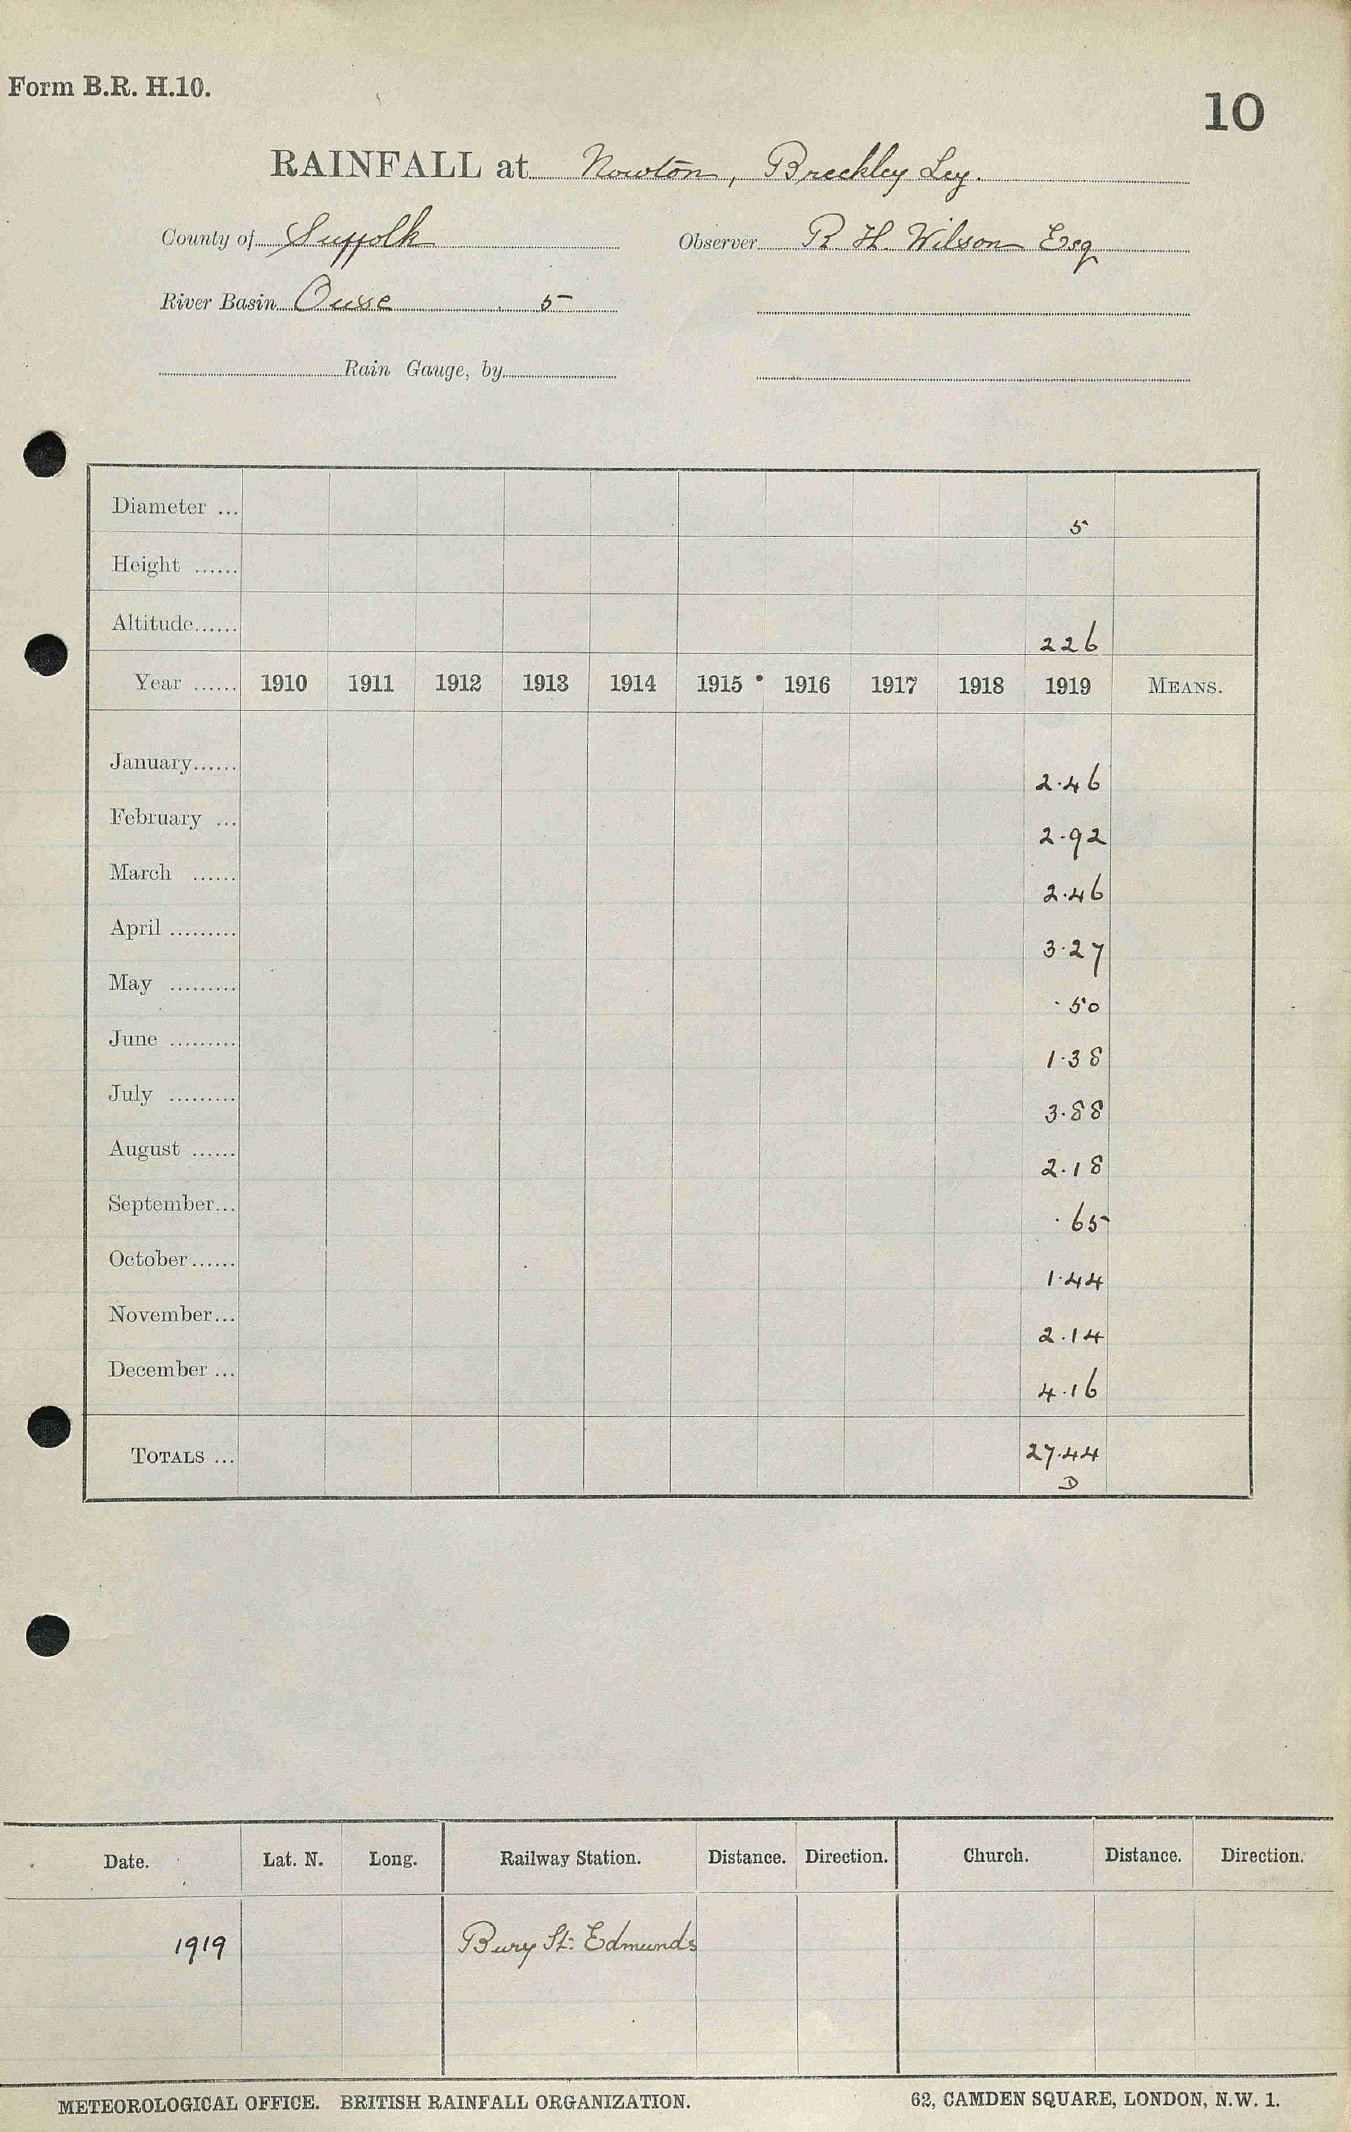 Form B.R. H.10.
10
RAINFALL at Nowton, Breckley Ley.
County of Suffolk Observer R. H. Wilson Esq
River Basin Ouse 5
Rain Gauge, by
Diameter ... 5
Height ......
Altitude...... 226
Year ...... 1910 1911 1912 1913 1914 1915 1916 1917 1918 1919 MEANS.
January...... 2.46
February ... 2.92
March ...... 2.46
April ......... 3.27
May ......... .50
June ......... 1.38
July ......... 3.88
August ...... 2.18
September... .65
October...... 1.44
November... 2.14
December ... 4.16
TOTALS ... 27.44
D
Date. Lat. N. Long. Railway Station. Distance. Direction. Church. Distance. Direction.
1919 Bury St: Edmunds
METEOROLOGICAL OFFICE. BRITISH RAINFALL ORGANIZATION. 62, CAMDEN SQUARE, LONDON, N.W. 1.